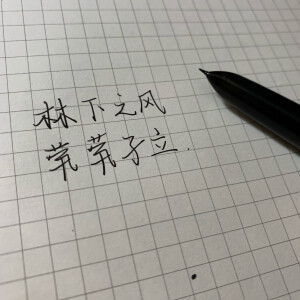 林下之风
茕茕孑立.